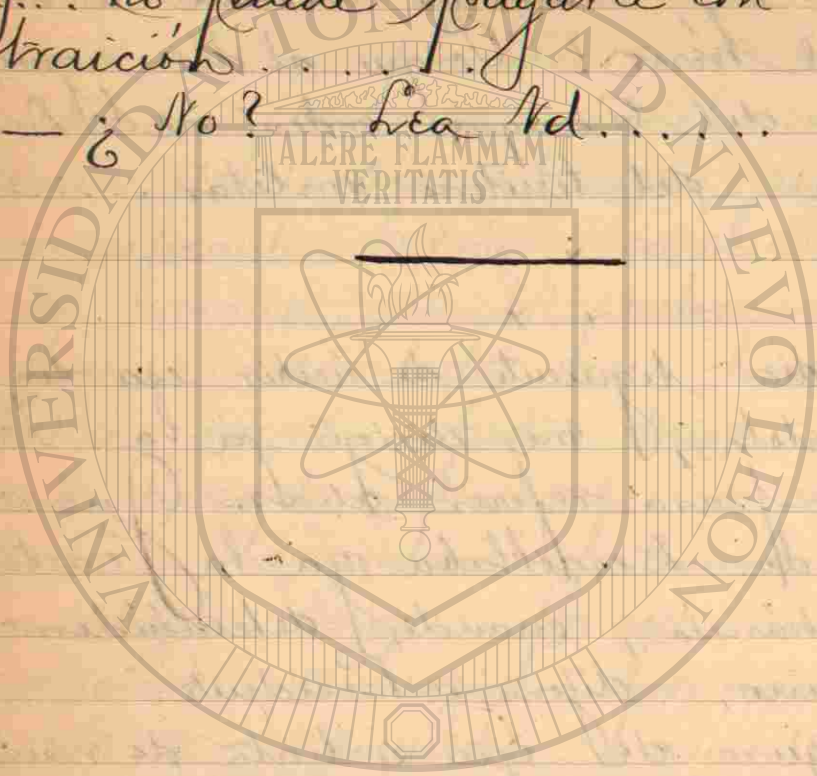 ... no puede pagarse con
traición . . . . . .
— ¿ No? Lea Vd. . . . . .
UNIVERSIDAD AUTONOMA D NVEVO LEON
ALERE FLAMMAM
VERITATIS